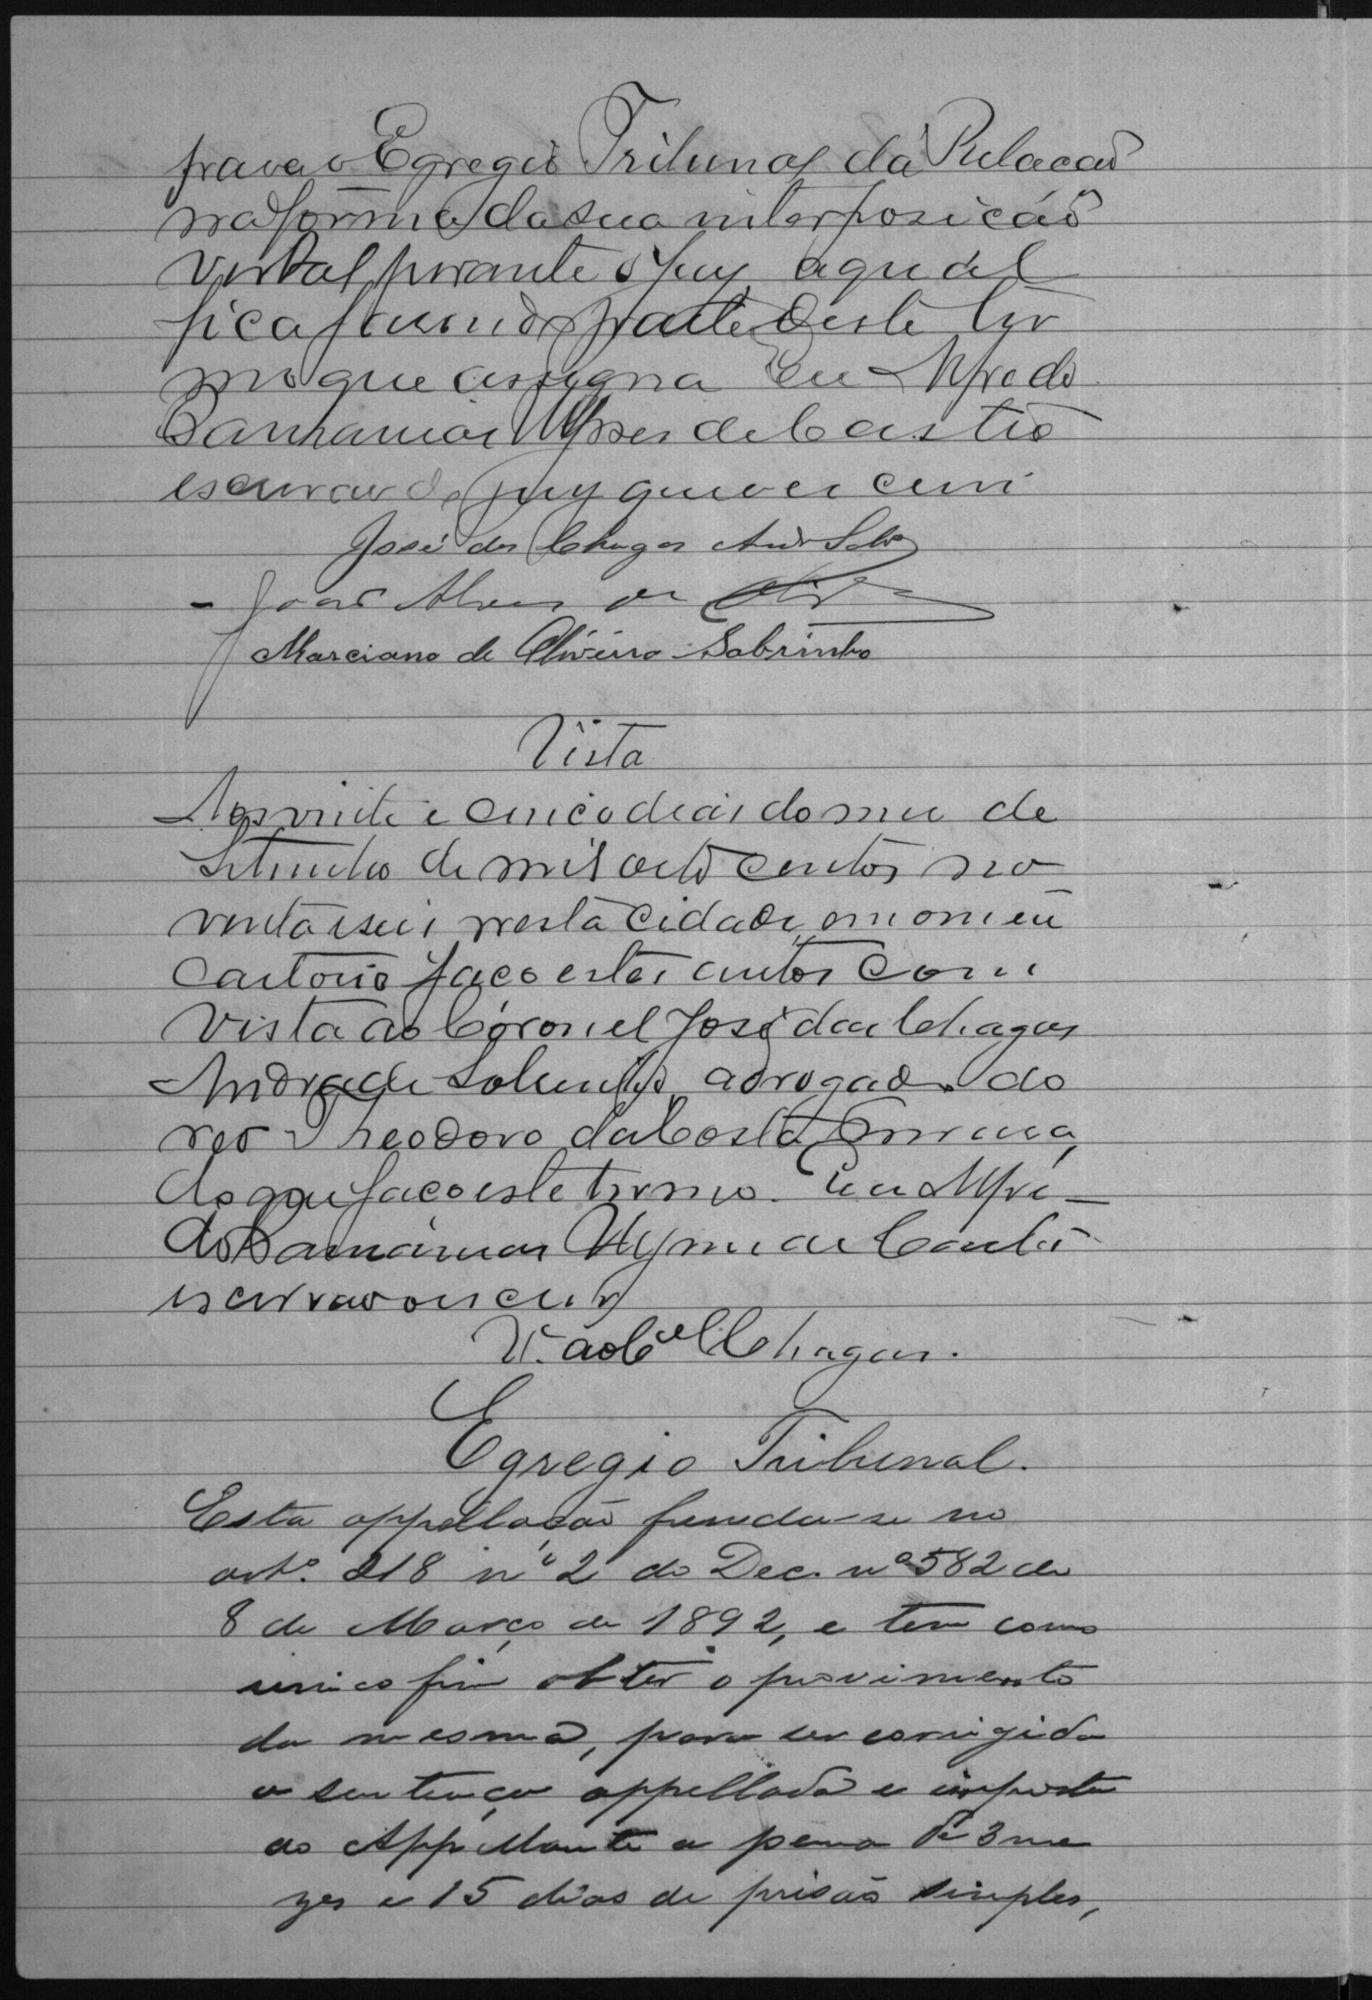 para o Egregio Tribunal da Relacaõ
na forma da sua interposicaõ
verbal perante o Juy, a qual
fica fasendo parte deste ter
mo que assigna Eu Alfredo
de Castro
escrivaõ do jury que o escrevi
José das Chagas Andr Sobro
João Alves de
Marciano de Oliveira Sobrinho
Vista
Aos vinte e cinco dias do mes de
Setembro de mil oito centos no
venta e seis nesta cidade em o meu
Cartorio faço estes autos com
Vista ao Coronel José das Chagas
Andrade Sobrinho, advogado do
reo Theodoro da Costa
do que faço este termo. Eu Alfre
do de Castro
escrivaõ o escrevy
Vª. ao Cel Chagas.
Egregio Tribunal.
Esta appellação funda-se no
artº. 218 nº 2 do Dec. nº 582 de
8 de Março de 1892, e tem como
unico fim obter o provimento
da mesma, para ser corrigida
a sentença appellada e imposta
ao Appellante a pena de 3 me
zes e 15 dias de prisão simples,